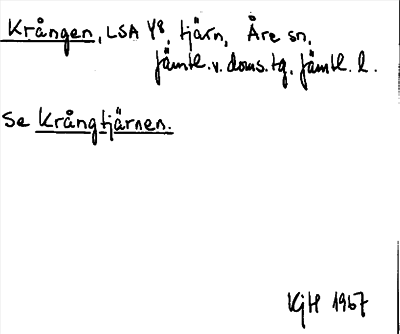 Krången, LSA Y8, tjärn, Åre sn,
Jämtl. v. doms. tg, Jämtl. l.
Se Krångtjärnen.
KjH 1967